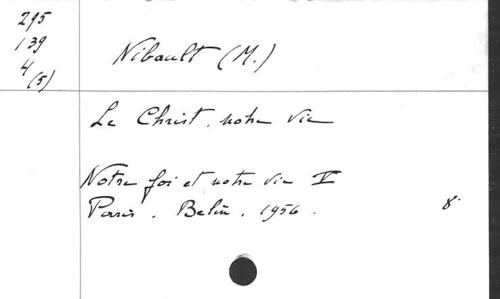 295
139
4
(5)
Nibault (M.)
Le Christ, notre vie
Notre foi et notre vie V
Paris. Belin. 1956.
8°